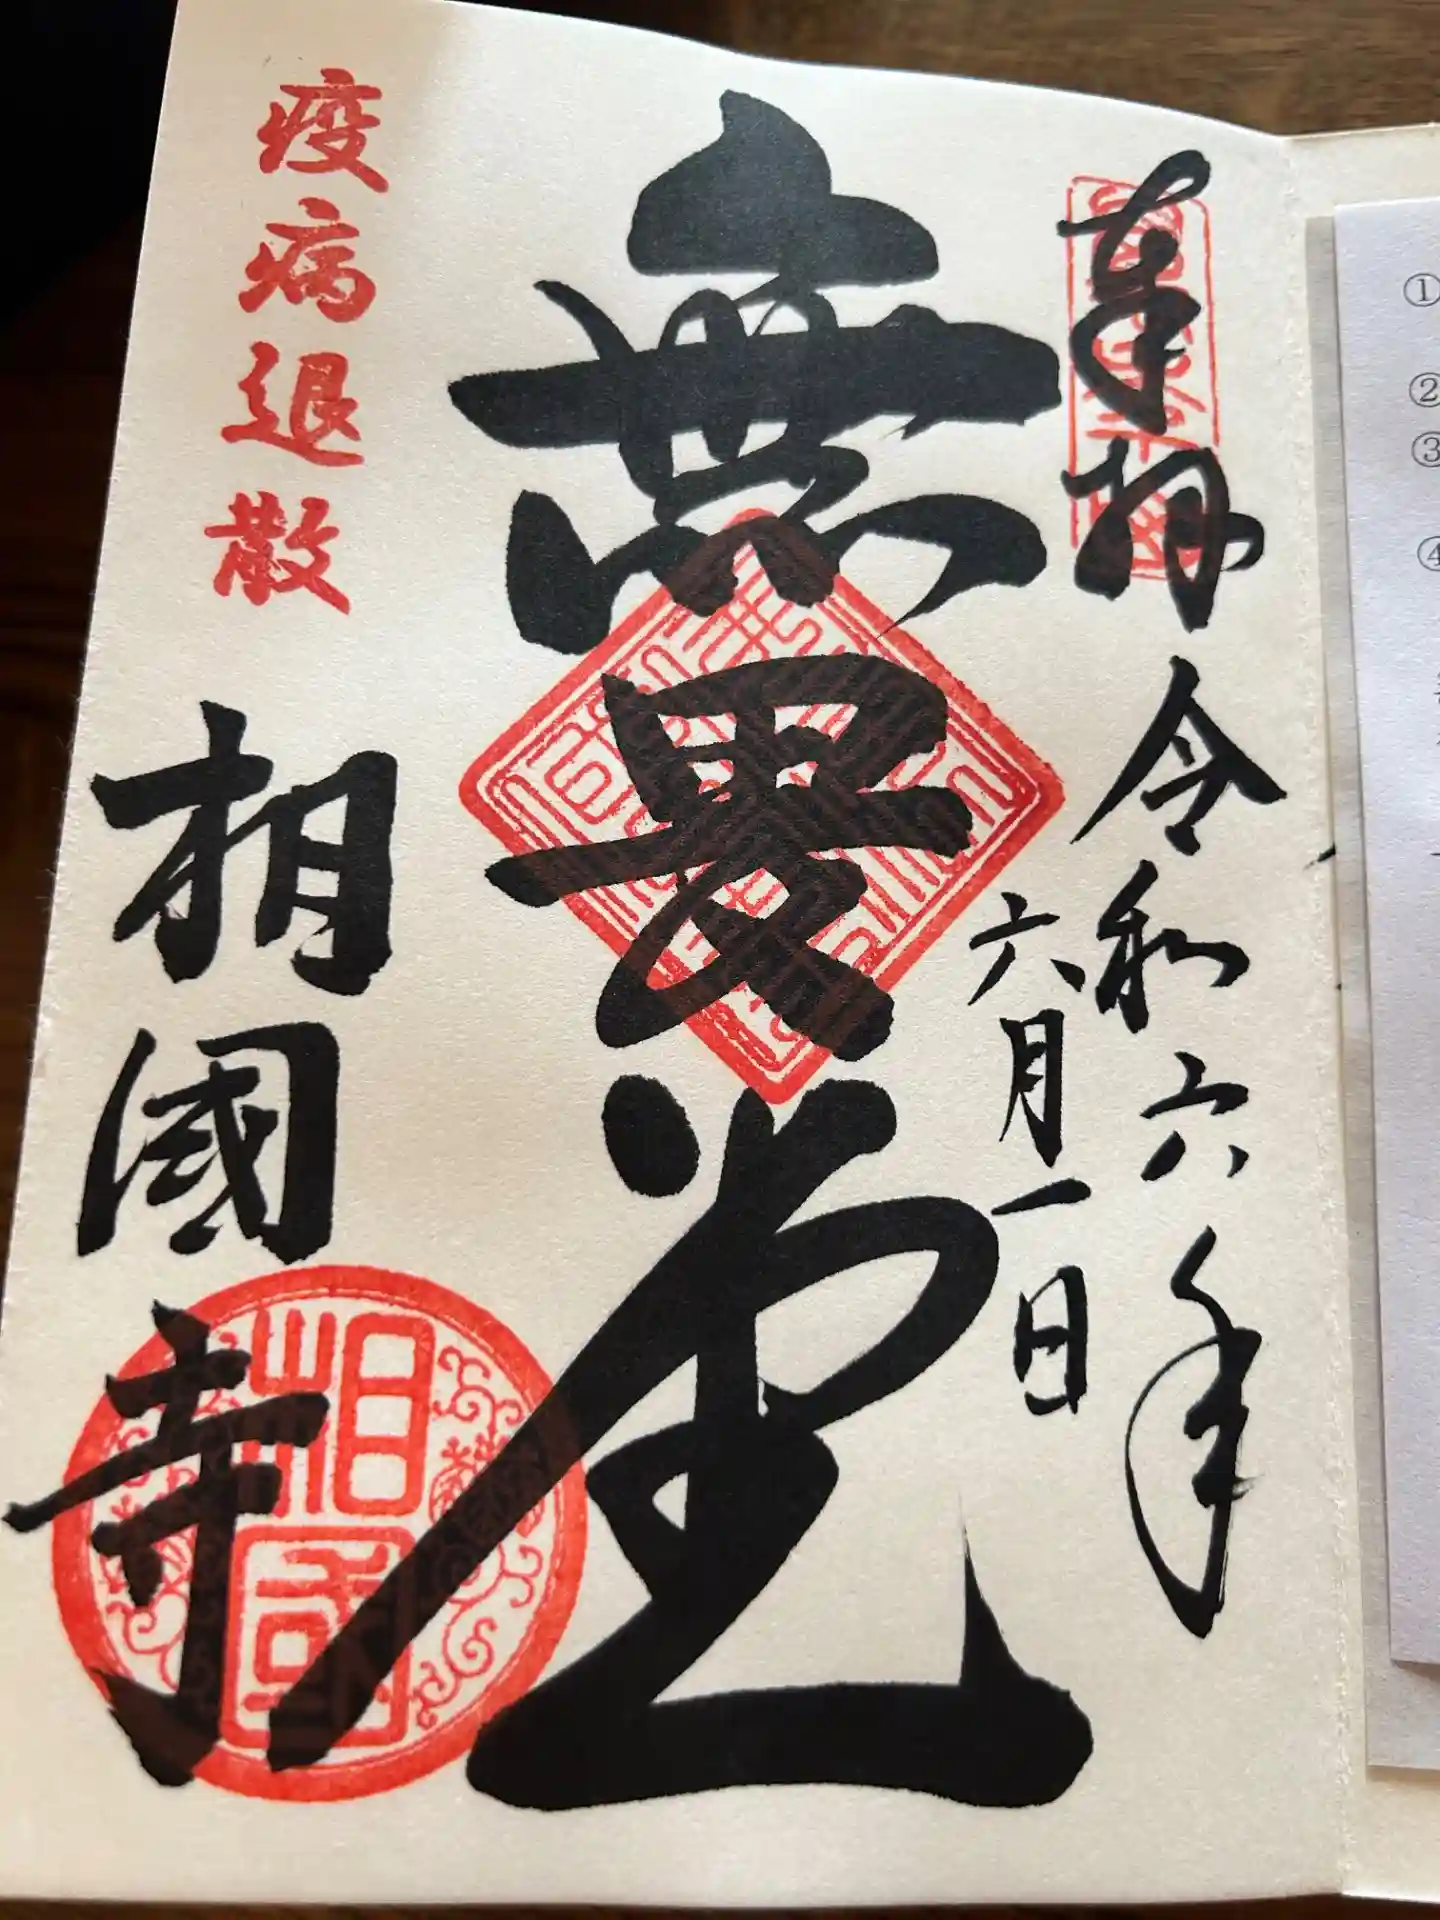 奉拝
令和六年
六月一日
無畏堂
疫病退散
相國寺
相國
①
②
③
④